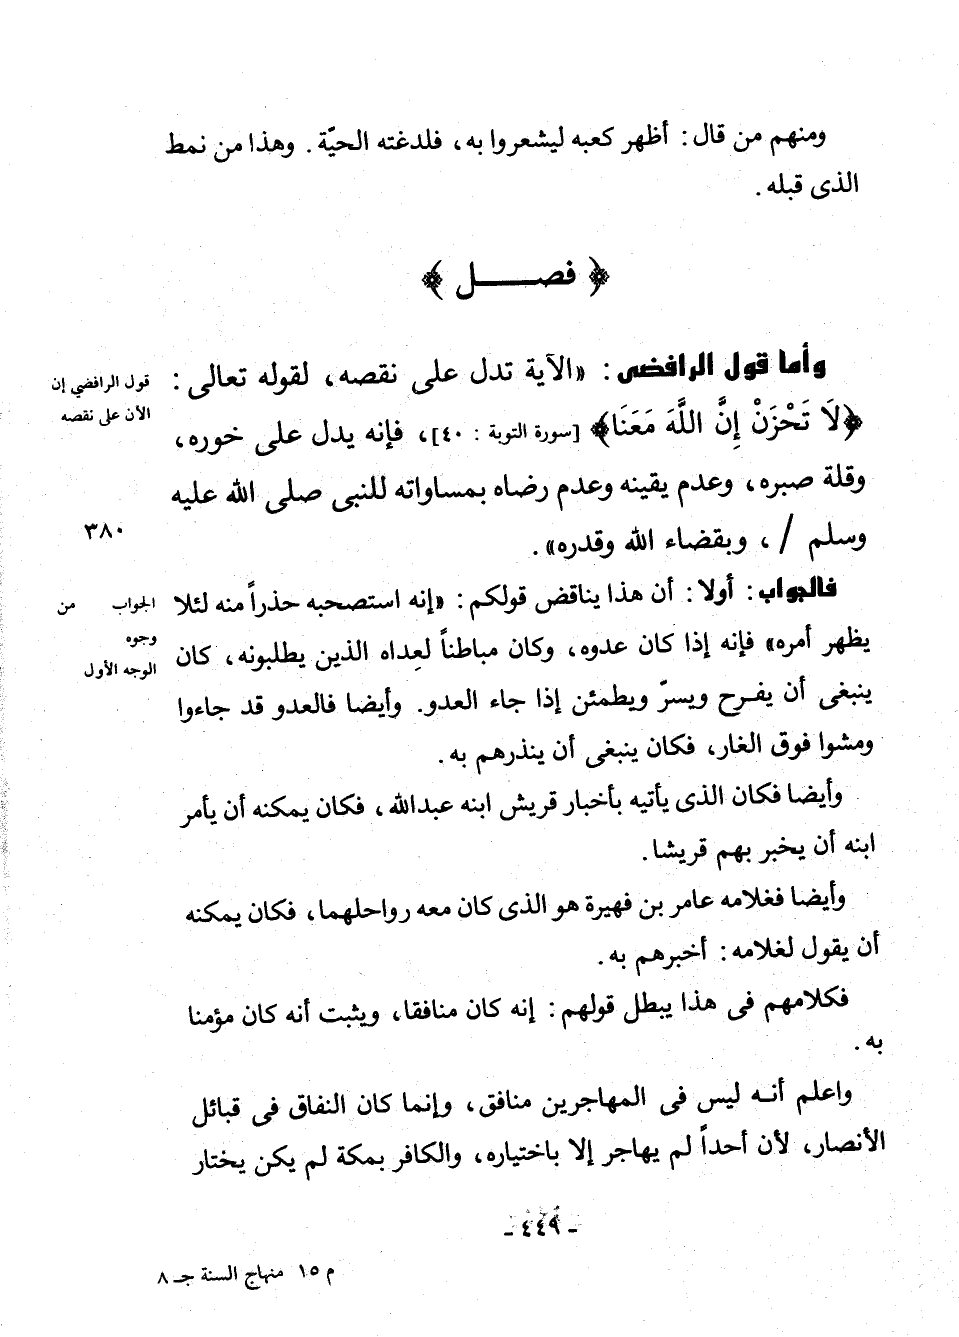 ومنهم من قال : أظهر كعبه ليشعروا به ، فلدغته الحيّة . وهذا من نمط
الذى قبله .
﴿ فصــــــل ﴾
وأما قول الرافضى : «الآية تدل على نقصه، لقوله تعالى :
قول الرافضي إن
الأن على نقصه
﴿لَا تَحْزَنْ إِنَّ اللَّهَ مَعَنَا﴾ [سورة التوبة : ٤٠]، فإنه يدل على خوره،
وقلة صبره، وعدم يقينه وعدم رضاه بمساواته للنبى صلى الله عليه
وسلم / ، وبقضاء الله وقدره» .
٣٨٠
فالجواب : أولا : أن هذا يناقض قولكم : «إنه استصحبه حذراً منه لئلا
الجواب من
وجوه
الوجه الأول
يظهر أمره» فإنه إذا كان عدوه، وكان مباطناً لعِداه الذين يطلبونه، كان
ينبغى أن يفـرح ويسرّ ويطمئن إذا جاء العدو. وأيضا فالعدو قد جاءوا
ومشوا فوق الغار، فكان ينبغى أن ينذرهم به .
وأيضا فكان الذى يأتيه بأخبار قريش ابنه عبدالله ، فكان يمكنه أن يأمر
ابنه أن يخبر بهم قريشا .
وأيضا فغلامه عامر بن فهيرة هو الذى كان معه رواحلهما، فكان يمكنه
أن يقول لغلامه : أخبرهم به .
فكلامهم فى هذا يبطل قولهم : إنه كان منافقا، ويثبت أنه كان مؤمنا
به .
واعلم أنـه ليس فى المهاجرين منافق، وإنما كان النفاق فى قبائل
الأنصار، لأن أحداً لم يهاجر إلا باختياره، والكافر بمكة لم يكن يختار
ـ ٤٤٩ ـ
م ١٥ منهاج السنة جـ ٨